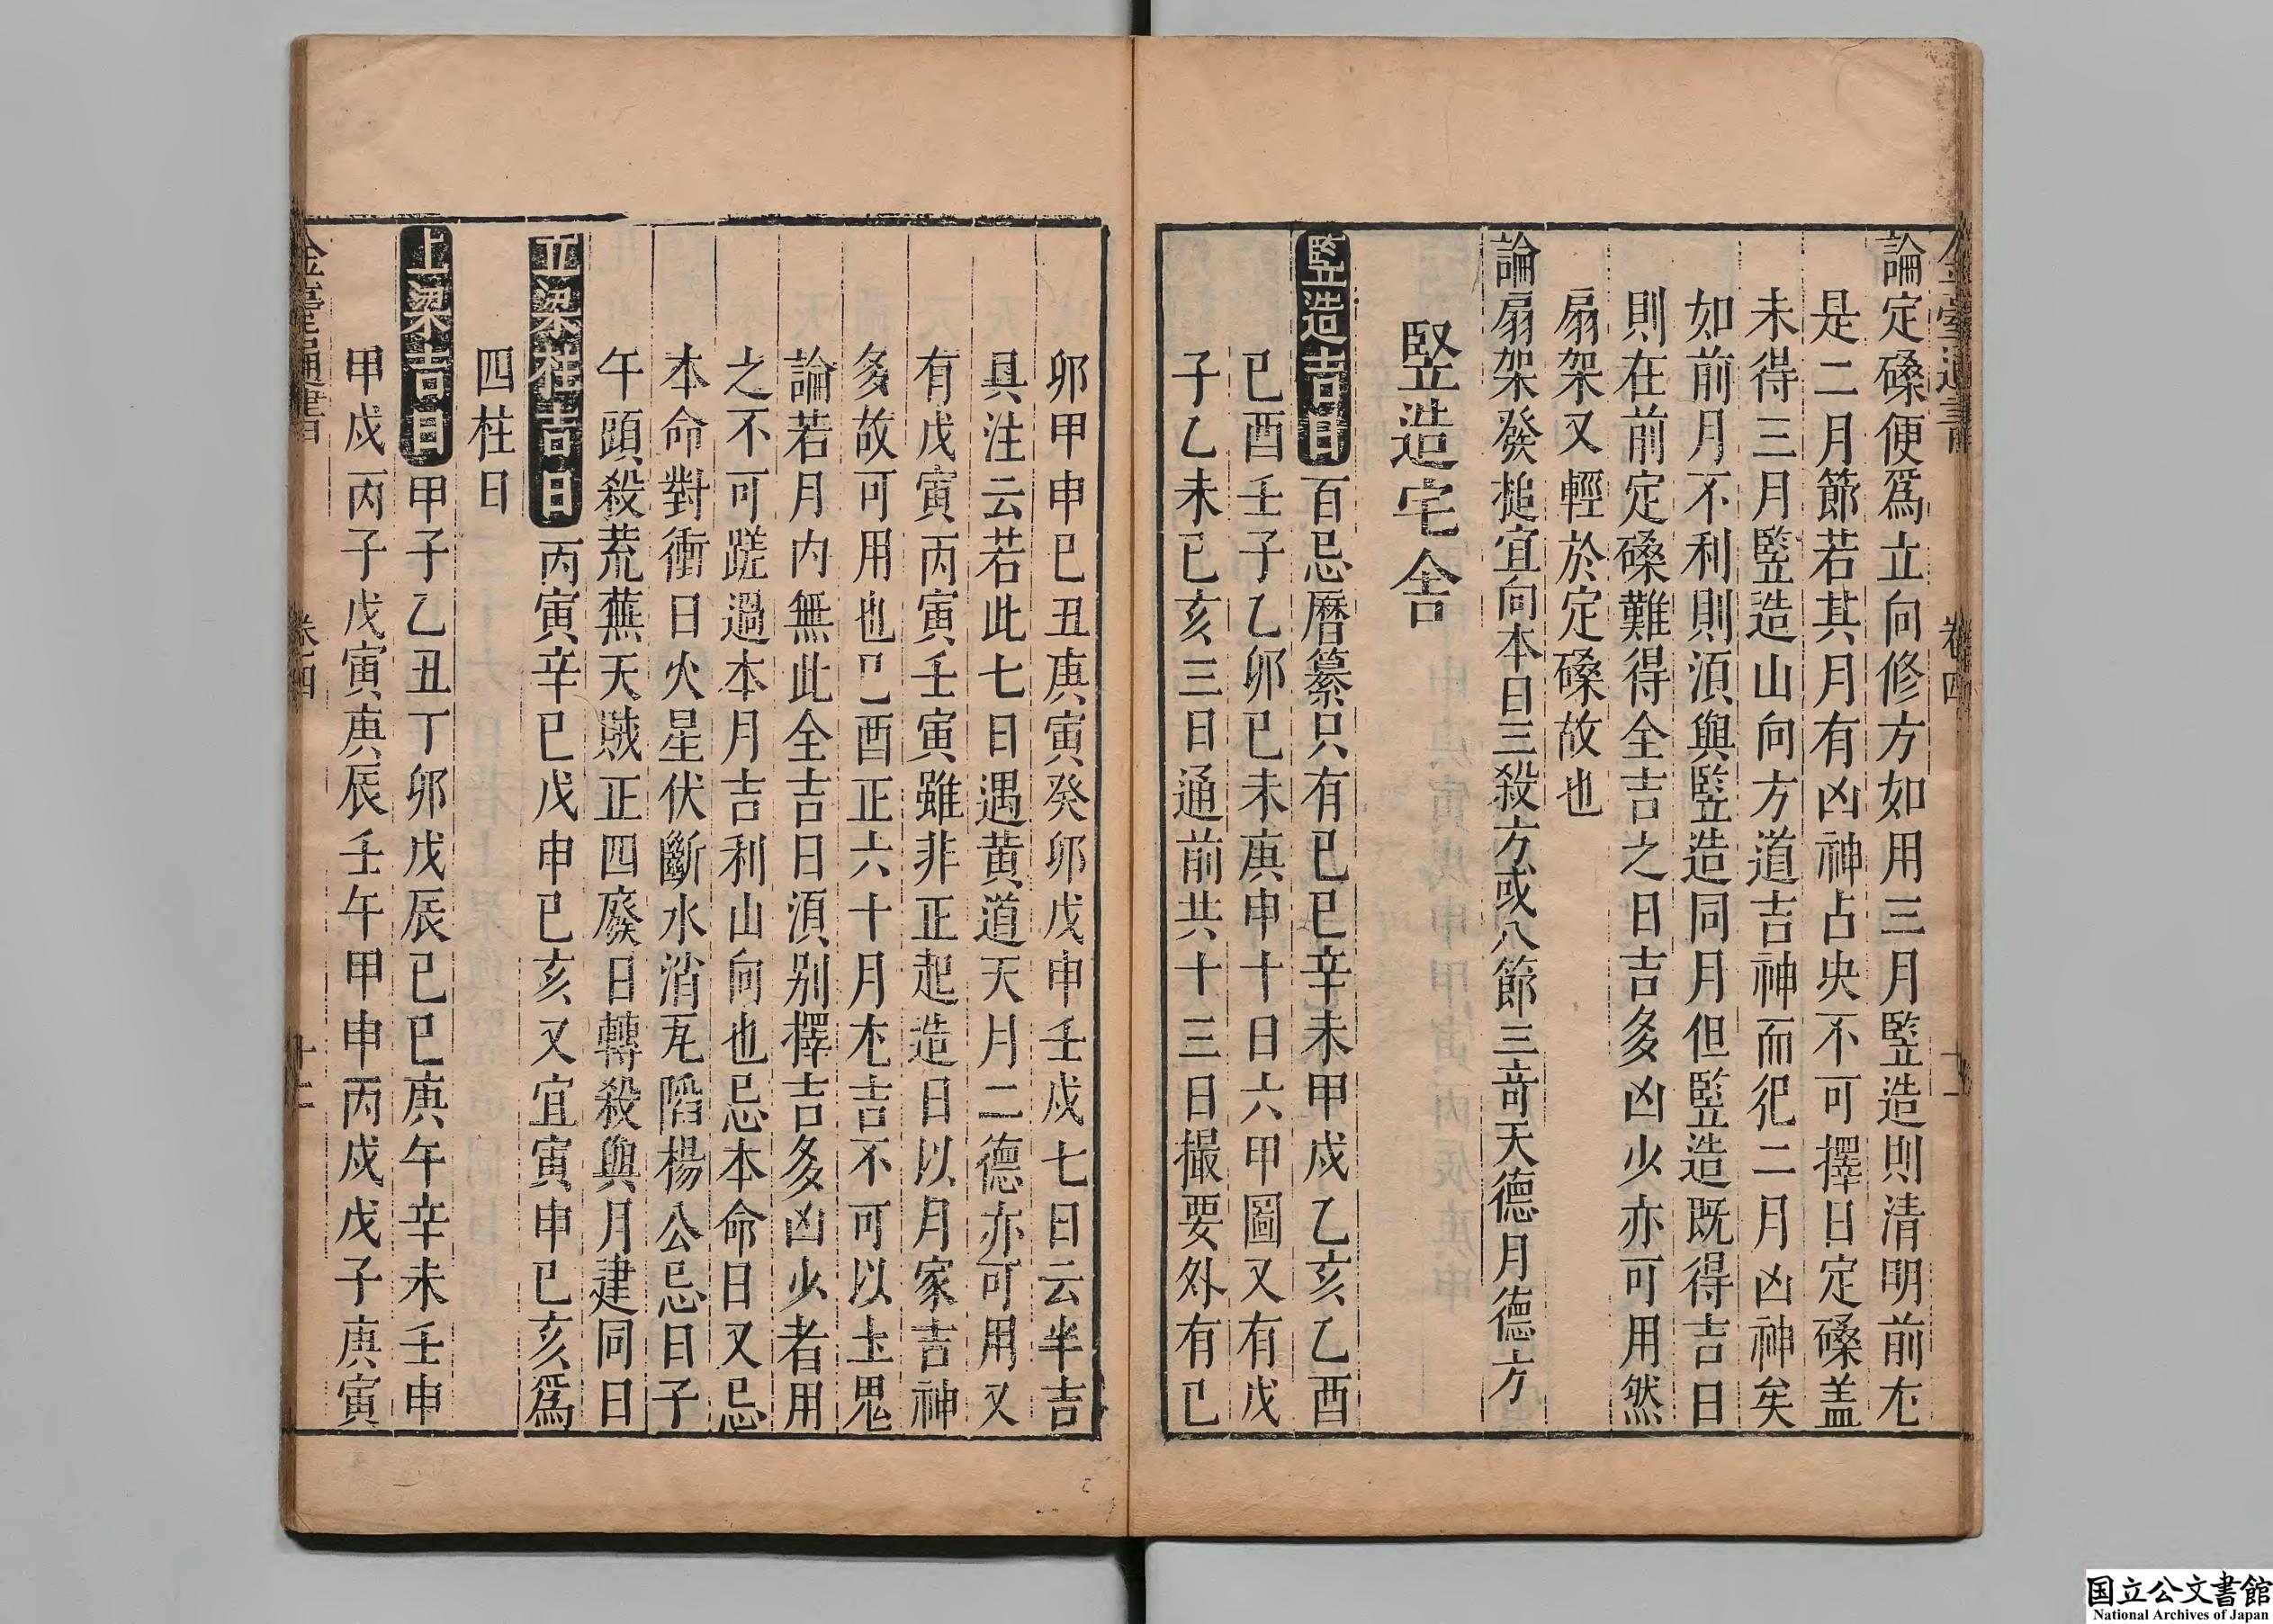 論定磉便爲立向修方如用三月竪造則清明前尢
是二月節若其月有凶神占央不可擇日定磉盖
未得三月竪造山向方道吉神而犯二月凶神矣
如前月不利則湏與竪造同月但竪造既得吉日
則在前定磉難得全吉之日吉多凶少亦可用然
扇架又輕於定磉故也
論扇架發搥宜向本日三殺方或八節三竒天德月德方
竪造宅舍
竪造吉日百忌曆纂只有己巳辛未甲戌乙亥乙酉
己酉壬子乙卯己未庚申十日六甲圖又有戊
子乙未己亥三日通前共十三日撮要外有己
卯甲申己丑庚寅癸卯戊申壬戌七日云半吉
具注云若此七日遇黄道天月二德亦可用又
有戊寅丙寅壬寅雖非正起造日以月家吉神
多故可用也己酉正六十月尢吉不可以土鬼
論若月内無此全吉日湏别擇吉多凶少者用
之不可蹉過本月吉利山向也忌本命日又忌
本命對衝日火星伏斷水消瓦陷楊公忌日子
午頭殺荒蕪天賊正四廢日轉殺與月建同日
立梁柱吉日丙寅辛巳戊申己亥又宜寅申巳亥爲
四柱日
上梁吉日甲子乙丑丁卯戊辰己巳庚午辛未壬申
甲戌丙子戊寅庚辰壬午甲申丙戌戊子庚寅
金臺通書
卷四
十二
国立公文書館
National Archives of Japan